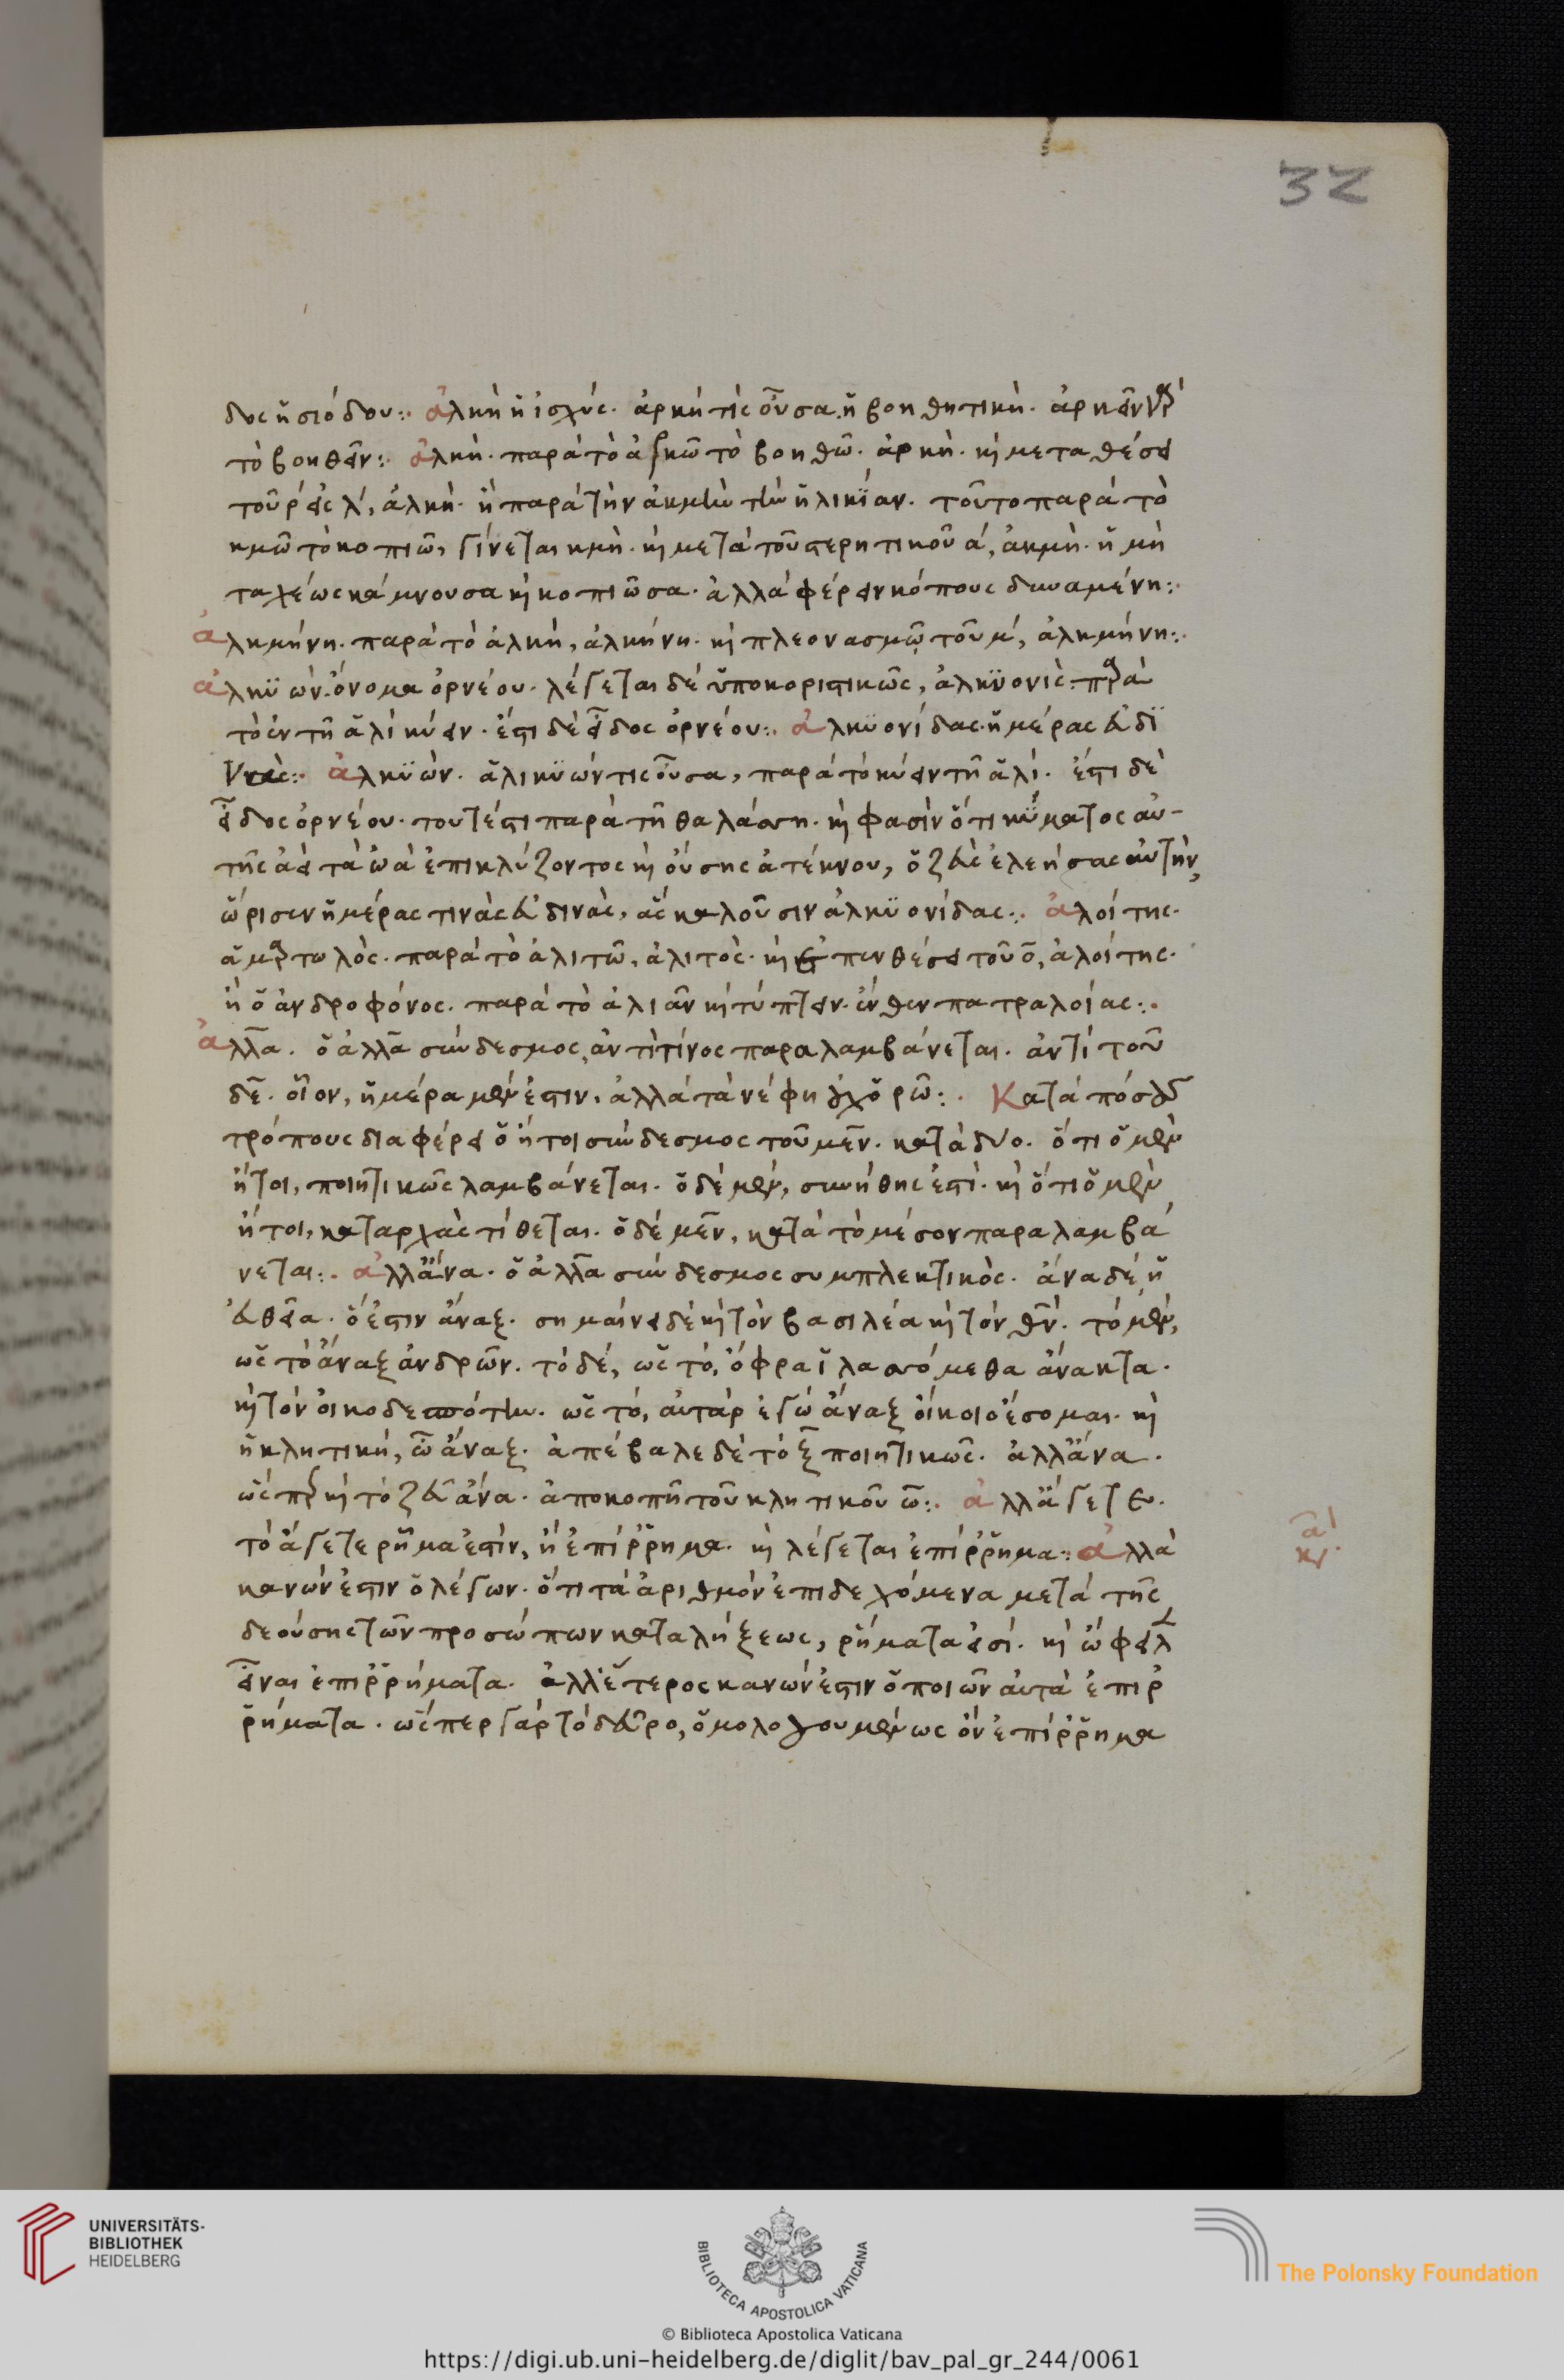 32
δος ἡσιόδου:. ἀλκὴ ἡ ἰσχύς. ἀρκή τίς οὖσα ἡ βοηθητική. ἀρκεῖν γὰρ
τὸ βοηθεῖν:. ἀλκὴ. παρὰ τὸ ἀρκῶ τὸ βοηθῶ. ἀρκὴ. κὶ μεταθέσει
τοῦ ρ εἰς λ, ἀλκὴ. ἢ παρὰ τὴν ἀκμὴν τὴν ἡλικίαν. τοῦτο παρὰ τὸ
κμῶ τὸ κοπιῶ, γίνεται κμὴ. κὶ μετὰ τοῦ στερητικοῦ ά, ἀκμὴ. ἡ μὴ
ταχέως κάμνουσα κὶ κοπιῶσα. ἀλλὰ φέρειν κόπους δυναμένη:.
ἀλκμήνη. παρὰ τὸ ἀλκή, ἀλκήνη. κὶ πλεονασμῶ τοῦ μ, ἀλκμήνη:.
ἀλκϋών. ὄνομα ὀρνέου. λέγεται δὲ ὑποκοριστικῶς, ἀλκϋονίς. παρὰ
τὸ ἐν τῆ ἁλὶ κύειν. ἔστι δὲ εἶδος ὀρνέου:. ἀλκϋονίδας ἡμέρας εὐδϊ
νὰς:. ἀλκϋών. ἁλικϋών τις οὖσα, παρὰ τὸ κύειν τῆ ἁλί. ἔστι δὲ
εἶδος ὀρνέου. τουτέστι παρὰ τῆ θαλάσση. κὶ φασὶν ὅτι κϋματος αὐ-
τῆς ἀεὶ τὰ ὠὰ ἐπικλύζοντος κὶ οὔσης ἀτέκνου, ὁ ζεὺς ἐλεήσας αὐτὴν,
ὥρισεν ἡμέρας τινὰς εὐδινὰς, ἃς καλοῦσιν ἀλκϋονίδας:. ἀλοίτης.
ἁμαρτωλὸς. παρὰ τὸ ἀλιτῶ, ἀλιτὸς. κὶ ἐπενθέσει τοῦ ο, ἀλοίτης.
ἢ ὁ ἀνδροφόνος. παρὰ τὸ ἀλιᾶν κὶ τύπτειν. ἔνθεν πατραλοίας:.
ἀλλὰ. ὁ ἀλλὰ σύνδεσμος, ἀντὶ τίνος παραλαμβάνεται. ἀντὶ τοῦ
δὲ. οἷον, ἡμέρα μὲν ἐστιν, ἀλλὰ τὰ νέφη οὐχ ὁρῶ:. Κατὰ πόσους
τρόπους διαφέρει ὁ ἤτοι σύνδεσμος τοῦ μὲν. κατὰ δύο. ὅτι ὁ μὲν
ἤτοι, ποιητικῶς λαμβάνεται. ὁ δὲ μὲν, συνήθης ἐστὶ. κὶ ὅτι ὁ μὲν
ἤτοι, καταρχὰς τίθεται. ὁ δὲ μὲν, κατὰ τὸ μέσον παραλαμβά
νεται:. ἀλλἄνα. ὁ ἀλλὰ σύνδεσμος συμπλεκτικὸς. ἄνα δὲ, ἡ
εὐθεῖα. ὅ ἐστιν ἄναξ. σημαίνει δὲ κὶ τὸν βασιλέα κὶ τὸν θν. τὸ μὲν,
ὡς τὸ ἄναξ ἀνδρῶν. τὸ δὲ, ὡς τὸ, ὄφρα ἱλασόμεθα ἄνακτα.
κὶ τὸν οἰκοδεσπότην. ὡς τὸ, αὐτὰρ ἐγὼ ἄναξ οἴκοιο ἔσομαι. κὶ
ἡ κλητική, ὦ ἄναξ. ἀπέβαλε δὲ τὸ ξ ποιητικῶς. ἀλλἄνα.
ὥσπερ κὶ τὸ ζεῦ ἄνα. ἀποκοπῆ τοῦ κλητικοῦ ω:. ἀλλἄγετε.
τὸ ἄγετε ῥῆμα ἐστὶν, ἢ ἐπίρρημα. κὶ λέγεται ἐπίρρημα:. ἀλλὰ
κανών ἐστιν ὁ λέγων. ὅτι τὰ ἀριθμὸν ἐπιδεχόμενα μετὰ τῆς
δεούσης τῶν προσώπων καταλήξεως, ῥήματα εἰσί. κὶ ὤφειλ
εἶναι ἐπιρρήματα. ἀλλἕτερος κανών ἐστιν ὁ ποιῶν αὐτὰ ἐπιρ
ρήματα. ὥσπερ γὰρ τὸ δεῦρο, ὁμολογουμένως ὂν ἐπίρρημα
UNIVERSITÄTS-
BIBLIOTHEK
HEIDELBERG
BIBLIOTECA APOSTOLICA VATICANA
The Polonsky Foundation
© Biblioteca Apostolica Vaticana
https://digi.ub.uni-heidelberg.de/diglit/bav_pal_gr_244/0061